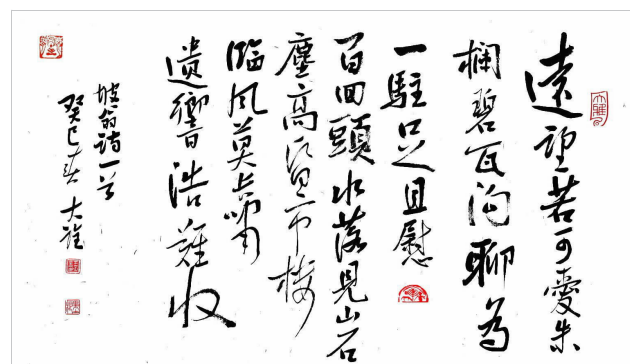 遠望若可愛朱
欄碧瓦沟聊為
一駐足且慰
百回頭水落見山石
塵高昏市樓
臨風莫長嘯
遺響浩難收
坡翁詩一首
癸巳春 大